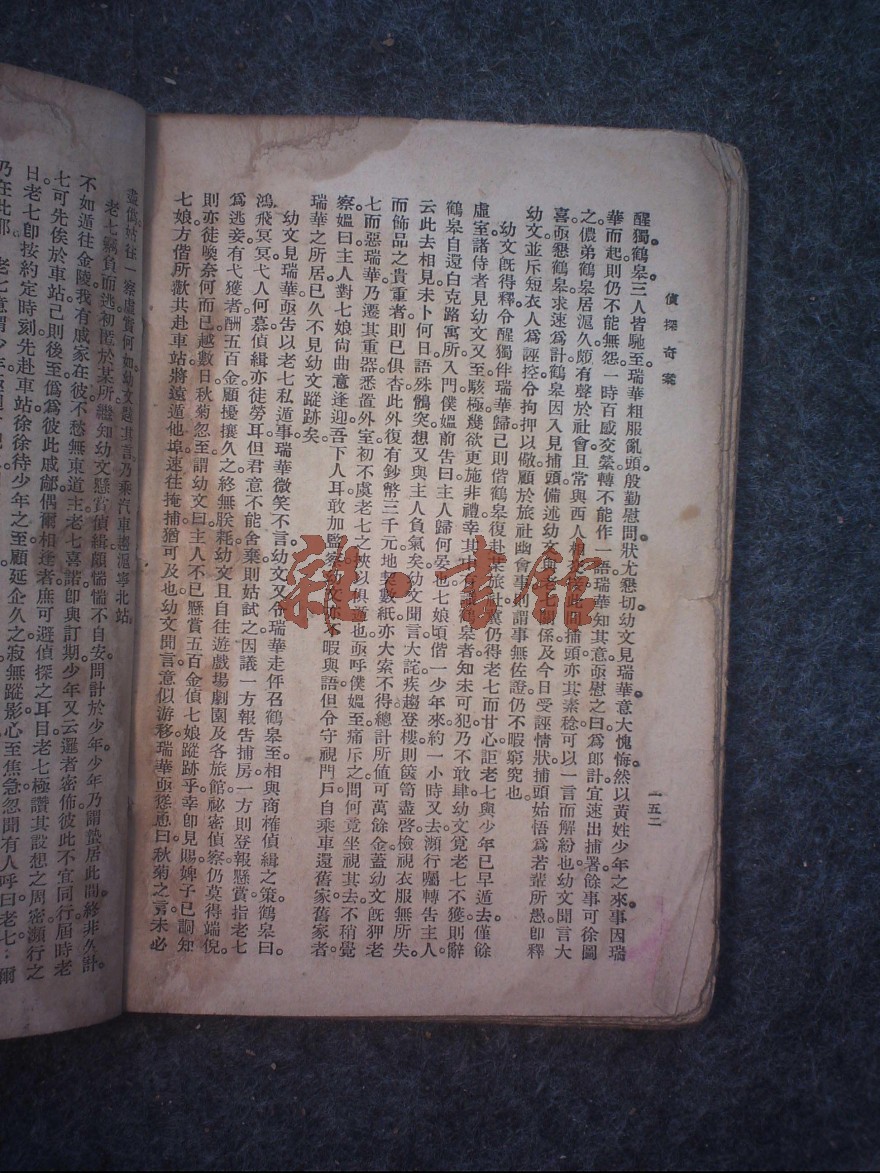 偵探奇案
一五二
醒獨鶴皋三人皆馳至瑞華粗服亂頭殷勤慰問狀尤懇切幼文見瑞華意大愧悔然以黃姓少年之來事因瑞
華而起則仍不能無怨一時百感交縈轉不能作一語瑞華知其意亟慰之曰爲郎計宜速出捕署餘事可徐圖
之儂弟鶴皋居滬久頗有聲於社會且常與西人相
此間捕頭亦其素稔可以一言而解紛也幼文聞言大
喜亟懇鶴皋求速爲計鶴皋因入見捕頭備述幼文與老七關係及今日受誣情狀捕頭始悟爲若輩所愚卽釋
幼文並斥短衣人爲誣控令拘押以儆顧於旅社幽會事則謂事無佐證仍不暇窮究也
幼文旣得釋令醒獨伴瑞華歸已則偕鶴皋復赴某旅社冀仍得老七而甘心詎老七與少年已早遁去僅餘
虛室諸侍者見幼文又至駭極幾欲更施非禮幸其中有識鶴皋者知未可犯乃不敢肆幼文覓老七不獲則辭
鶴皋自還白克路寓所入門僕媼前告曰主人歸何晏也七娘頃偕一少年來約一小時又去瀕行囑轉告主人
云此去相見未卜何日語殊鶻突想又與主人負氣矣幼文聞言大詫疾趨登樓則篋笥盡啓檢視衣服無所失
而飾品之貴重者則已俱杳此外復有鈔幣三千元地契數紙亦大索不得總計所値可萬餘金蓋幼文旣狎老
七而惡瑞華乃遷其重器悉置外室初不虞老七之挾以俱遁也亟呼僕媼至痛斥之問何竟坐視其去不稍覺
察媼曰主人對七娘尙曲意逢迎吾下人耳敢加監察幼文亦不暇與語但分守視門戶自乘車還舊家舊家者
瑞華之所居已久不見幼文蹤跡矣
幼文見瑞華亟告以老七私遁事瑞華微笑不言幼文又令瑞華走伻召鶴皋至相與商榷偵緝之策鶴皋曰
鴻飛冥冥弋人何慕偵緝亦徒勞耳但君意不能舍棄則姑試之因議一方報告捕房一方則登報懸賞指老七
爲逃妾有弋獲者酬五百金顧擾攘久之終無朕耗幼文且自往遊戲場劇園及各旅館祕密偵察仍莫得端倪
則亦徒喚奈何而已越數日秋菊忽至謂幼文曰主人不已懸賞五百金偵七娘蹤跡乎幸卽見賜婢子已詗知
七娘方偕所歡共赴車站將遠遁他埠速往掩捕猶可及也幼文聞言意似游移瑞華亟慫恿曰秋菊之言未必
盡僞姑往一察虛實何如幼文韙其言乃乘汽車趨滬寧北站
老七竊負而逃初匿於某所繼知幼文懸賞偵緝頗惴惴不自安問計於少年少年乃謂蟄居此間終非久計
不如遁往金陵我有戚家在彼不愁無東道主老七喜諾卽與訂期少年又云邏者密佈彼此不宜同行屆時老
七可先俟於車站己則後至僞爲彼此戚鄺偶爾相逢者庶可避偵探之耳目老七極讚其設想之周密瀕行之
日老七卽按約定時刻先赴車站徐徐待少年之至顧延企久之寂無蹤影心至焦急忽聞有人呼曰老七爾
乃在此耶老七意謂少年